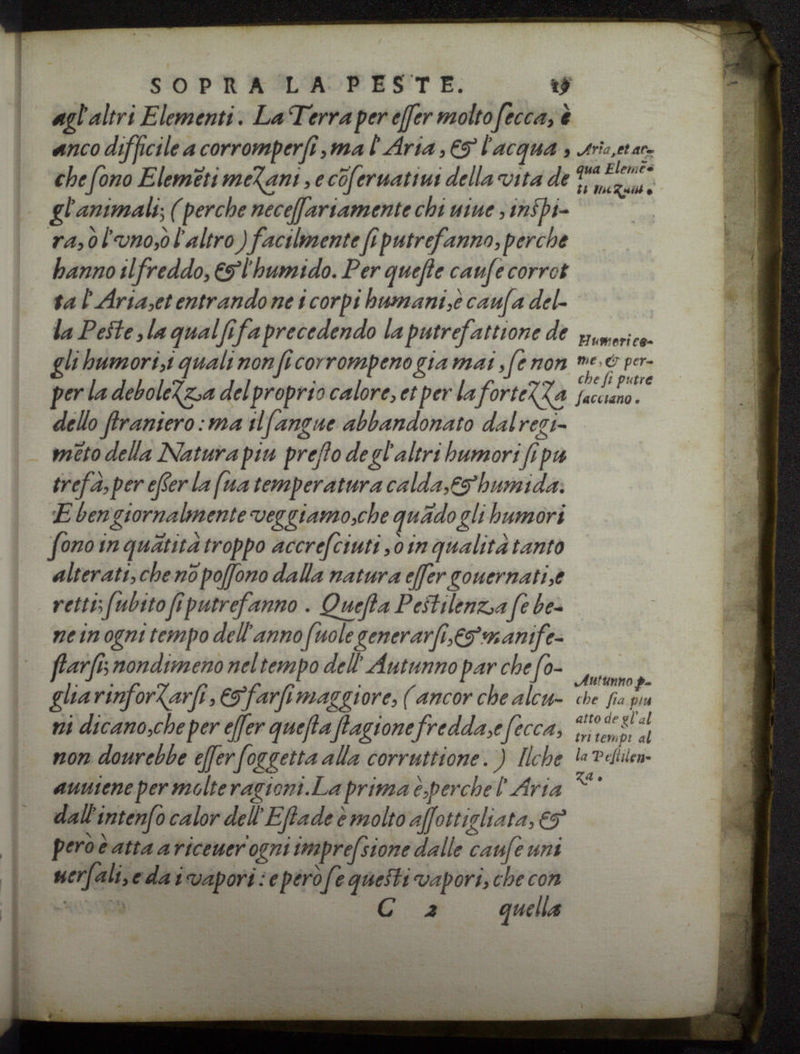 SOPRA LA PESTE. 19
agl'altri Elementi. La Terra per esser molto secca, è
anco difficile a corrompersi, ma l'Aria, & l'acqua,
che sono Elemẽti mezani, e cõseruatiui della vita de
gl'animali; (perche necessariamente chi uiue, inspi-
ra, ò l'vno, ò l'altro) facilmente si putrefanno, perche
hanno il freddo, & l'humido. Per queste cause corrot
ta l'Aria, et entrando ne i corpi humani, è causa del-
la Peste, la qual si fa precedendo la putrefattione de
gli humori, i quali non si corrompeno gia mai, se non
per la debolezza del proprio calore, et per la fortezza
dello straniero: ma il sangue abbandonato dal regi-
mẽto della Natura piu presto degl'altri humori si pu
trefà, per esser la sua temperatura calda, & humida.
E ben giornalmente veggiamo, che quãdo gli humori
sono in quãtità troppo accresciuti, ò in qualità tanto
alterati, che nõ possono dalla natura esser gouernati, e
retti; subito si putrefanno. Questa Pestilenza se be-
ne in ogni tempo dell'anno suole generarsi, & manife-
starsi; nondimeno nel tempo dell'Autunno par che so-
glia rinforzarsi, & farsi maggiore, (ancor che alcu-
ni dicano, che per esser questa stagione fredda, e secca,
non dourebbe esser soggetta alla corruttione.) Ilche
auuiene per molte ragioni. La prima è, perche l'Aria
dall'intenso calor dell'Estade è molto assottigliata, &
però è atta a riceuer ogni impressione dalle cause uni
uersali, e da i vapori: e però se questi vapori, che con
C 2 quella
Aria, et ac-
qua Elemẽ-
ti mezani.
Humeri co-
me, & per-
che si putre
facciano.
Autunno p-
che sia piu
atto de gl'al
tri tempi al
la Pestilen-
za.